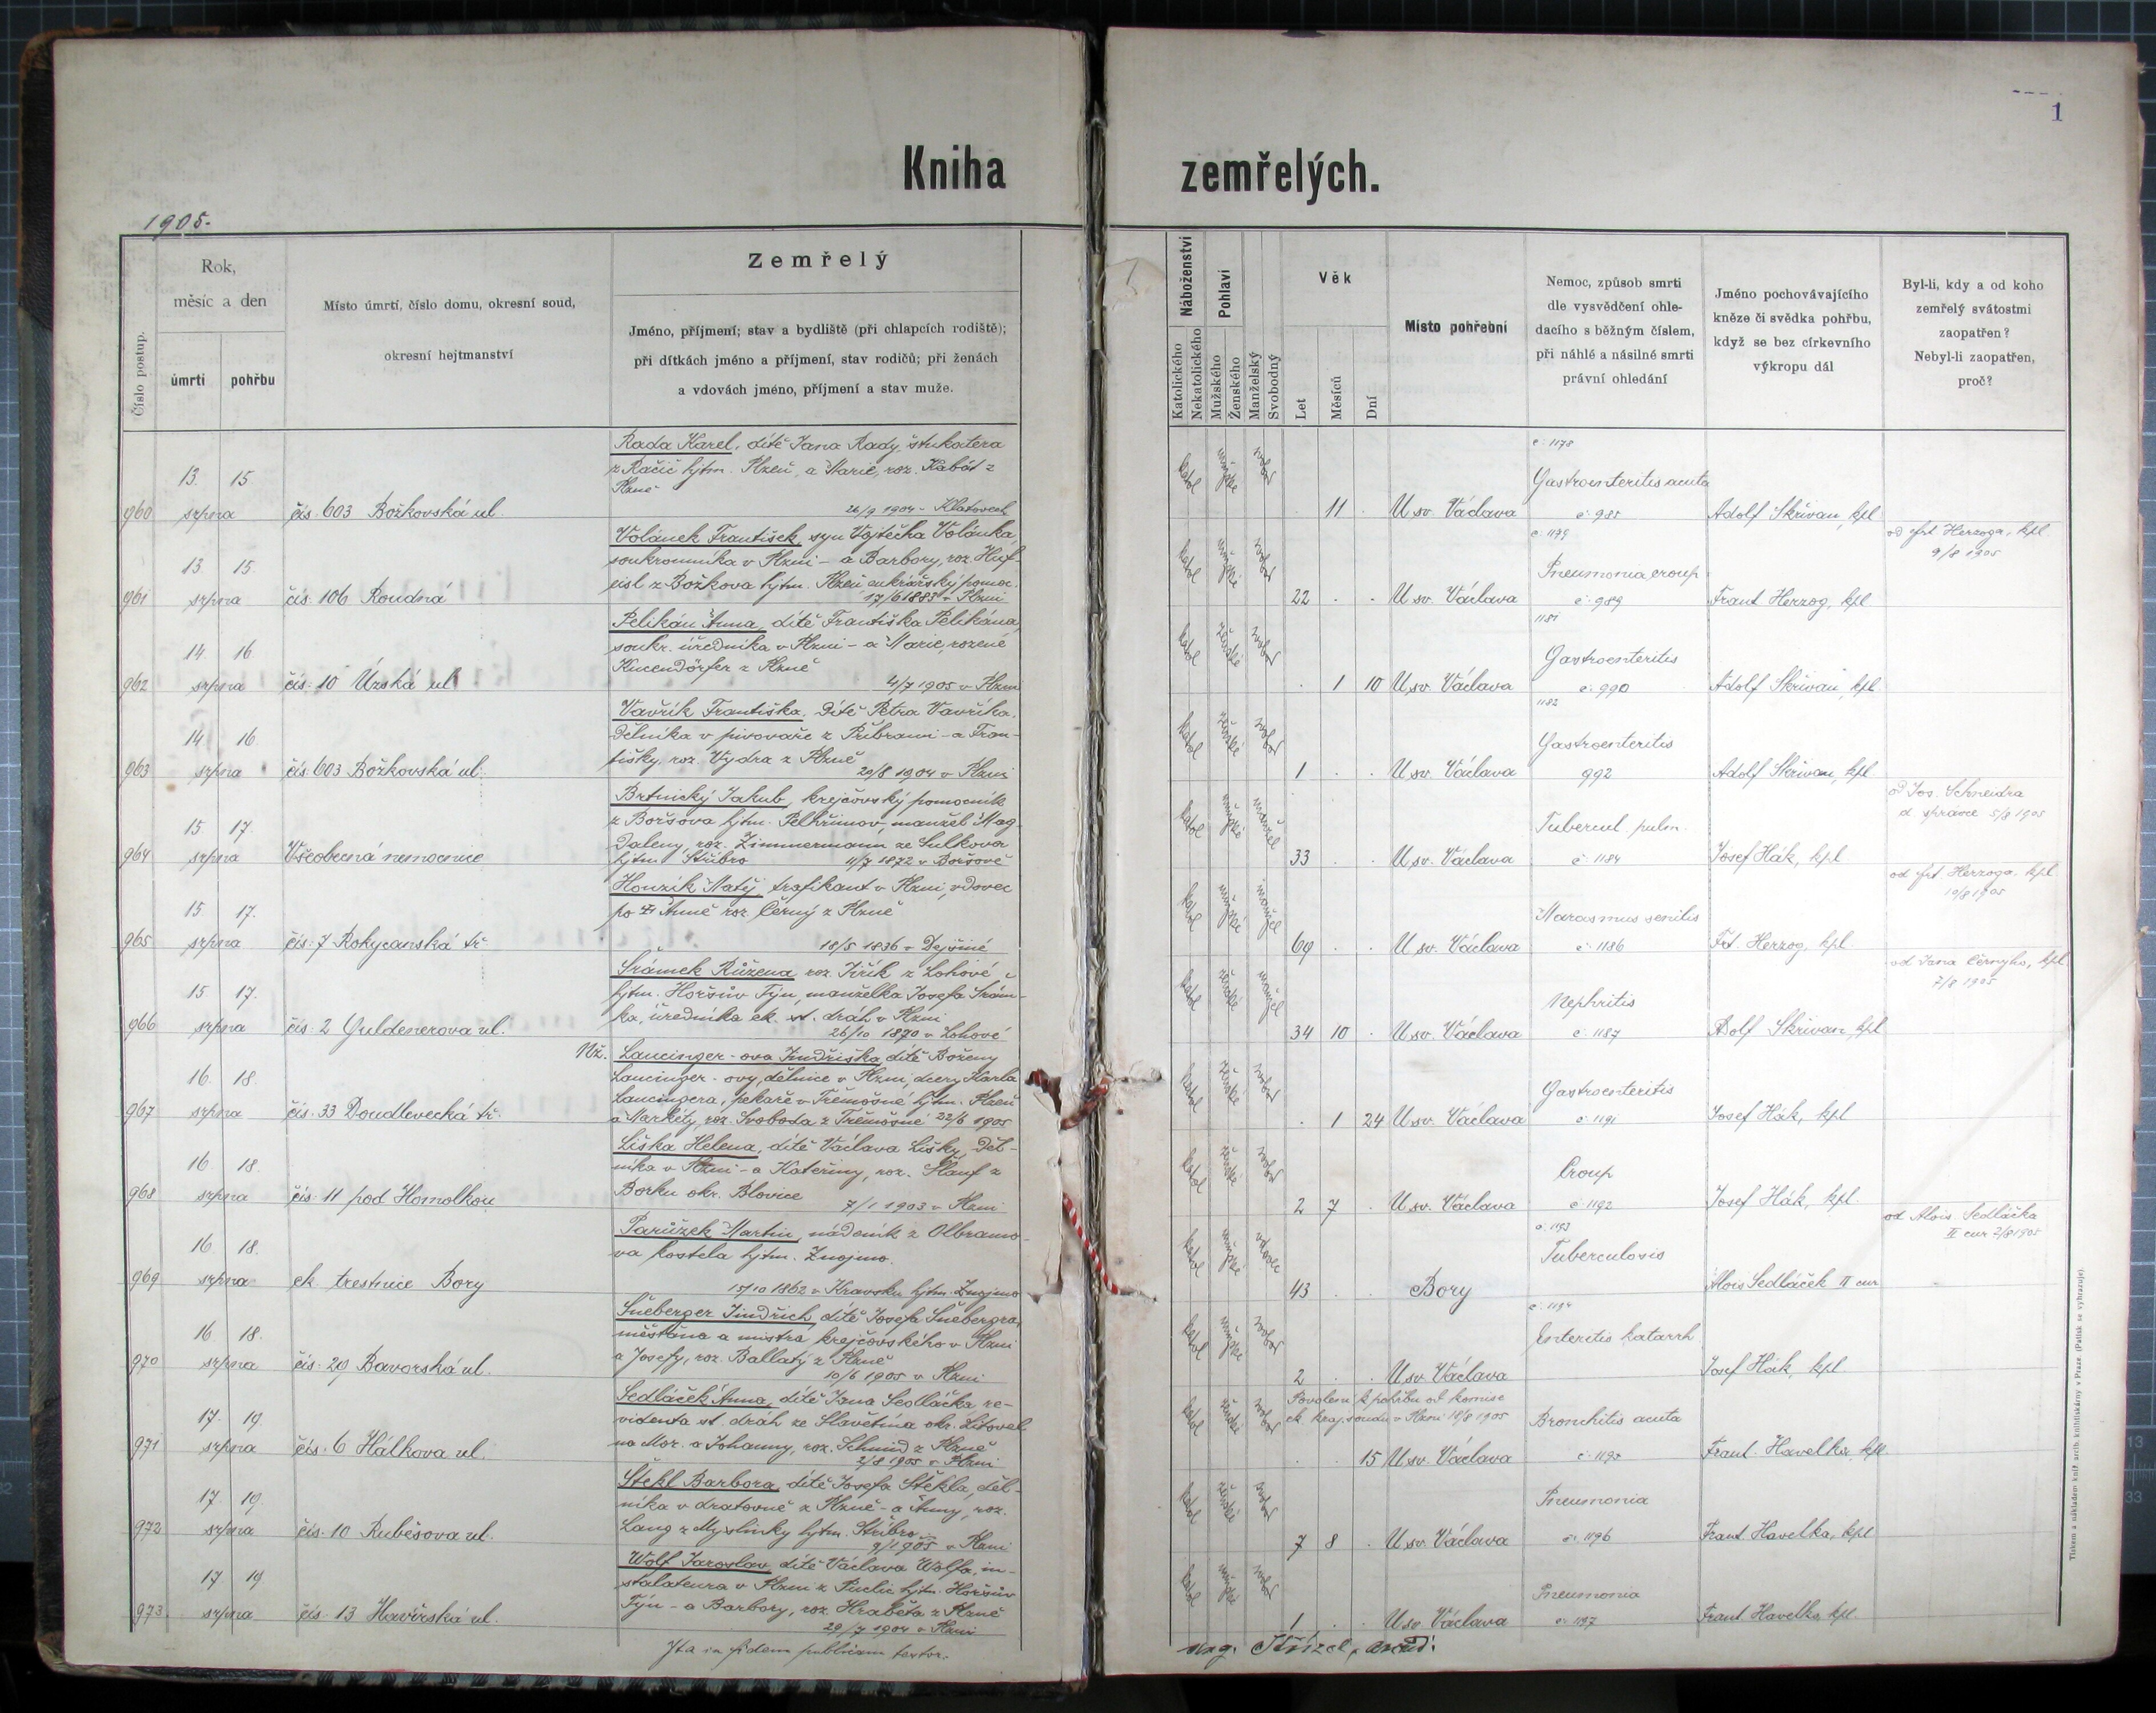 1
Kniha zemřelých.
1905.
Číslo postup.
Rok,
měsíc a den
úmrtí
pohřbu
Místo úmrtí, číslo domu, okresní soud,
okresní hejtmanství
Zemřelý
Jméno, příjmení; stav a bydliště (při chlapcích rodiště);
při dítkách jméno a příjmení, stav rodičů; při ženách
a vdovách jméno, příjmení a stav muže.
Náboženství
Katolického
Nekatolického
Pohlaví
Mužského
Ženského
Manželský
Svobodný
Věk
Let
Měsíců
Dní
Místo pohřební
Nemoc, způsob smrti
dle vysvědčení ohle-
dacího s běžným číslem,
při náhlé a násilné smrti
právní ohledání
Jméno pochovávajícího
kněze či svědka pohřbu,
když se bez církevního
výkropu dál
Byl-li, kdy a od koho
zemřelý svátostmi
zaopatřen?
Nebyl-li zaopatřen,
proč?
960 13. 15 srpna čís. 603 Božkovská ul.
Rada Karel, dítě Jana Rady, štukatera
z Račic hjtm. Plzeň, a Marie, roz. Kabát z
Plzně
26/9 1904 v Klatovech
katol mužské svobod 11 U sv. Václava
č. 1178
Gastroenteritis acuta
č. 985
Adolf Skřivan, kpl
961 13. 15. srpna čís. 106 Roudná
Volánek František, syn Vojtěcha Volánka,
soukromníka v Plzni - a Barbory, roz. Huf-
eisl z Božkova hjtm. Plzeň cukrářský pomoc.
17/6 1883 v Plzni
katol mužské svobod 22 U sv. Václava
č. 1179
Pneumonia croup
č. 989
Frant Herzog, kpl
od Frt Herzoga, kpl
9/8 1905
962 14. 16 srpna čís. 10 Úzská ul
Pelikán Anna, dítě Františka Pelikána,
soukr. úředníka v Plzni - a Marie, rozené
Kucendörfer z Plzně
4/7 1905 v Plzni
katol ženské svobod 1 10 U sv. Václava
1181
Gastroenteritis
č. 990
Adolf Skřivan, kpl.
963 14 16. srpna čís. 603 Božkovská ul.
Vavřík Františka, dítě Petra Vavříka,
dělníka v pivovaře z Příbrami - a Fran-
tišky, roz. Vydra z Plzně
20/8 1904 v Plzni
katol ženské svobod 1 U sv. Václava
1182
Gastroenteritis
992
Adolf Skřivan, kpl
964 15 17. srpna Všeobecná nemocnice
Brtnický Jakub, krejčovský pomocník
z Boršova hjtm. Pelhřimov, manžel Mag-
daleny, roz. Zimmermann ze Sulkova
hjtm. Stříbro 11/7 1872 v Boršově
katol mužské manžel 33 U sv. Václava
Tubercul. pulm.
č. 1184
Josef Hák, kpl
od Jos. Schneidra
d. správce 5/8 1905
965 15 17. srpna čís. 7 Rokycanská tř.
Houzík Matěj, trafikant v Plzni, vdovec
po Anně roz. Černý z Plzně
18/5 1836 v Dejšině
katol mužské manžel 69 U sv. Václava
Marasmus senilis
č. 1186
Frt. Herzog, kpl.
od Frt Herzoga, kpl.
10/8 1905
966 15 17. srpna čís. 2 Guldenerova ul.
Šrámek Růžena, roz. Jiřík z Lohové
hjtm. Horšův Týn, manželka Josefa Šrám-
ka, úředníka ck. st. drah v Plzni
26/10 1870 v Lohové
katol ženské manžel 34 10 U sv. Václava
Nephritis
č. 1187
Adolf Skřivan, kpl
od Jana Černyho, kpl
7/8 1905
967 16. 18. srpna čís. 33 Doudlevecká tř.
Nž. Laucinger-ova Jindřiška, dítě Boženy
Laucinger-ovy, dělnice v Plzni, dcery Karla
Laucingera, pekaře v Třemošné hjtm. Plzeň
a Markéty, roz. Svoboda z Třemošné 22/6 1905
katol ženské svobod 1 24 U sv. Václava
Gastroenteritis
č. 1191
Josef Hák, kpl
968 16. 18. srpna čís. 11 pod Homolkou
Liška Helena, dítě Václava Lišky, děl-
níka v Plzni - a Kateřiny, roz. Hauf z
Borku okr. Blovice
7/1 1903 v Plzni
katol ženské svobod 2 7 U sv. Václava
Croup
č. 1192
Josef Hák, kpl.
969 16 18. srpna ck trestnice Bory
Parůžek Martin, nádeník z Olbramo-
va kostela hjtm. Znojmo.
15/10 1862 v Kravsku hjtm. Znojmo
katol mužské vdovec 43 Bory
č. 1193
Tuberculosis
Alois Sedláček II cur
od Alois. Sedláčka
II cur 2/8 1905
970 16 18. srpna čís. 29 Bavorská ul.
Šneberger Jindřich, dítě Josefa Šnebergra,
měšťana a mistra krejčovského v Plzni
a Josefy, roz. Ballatý z Plzně
10/6 1905 v Plzni
katol mužské svobod 2 U sv. Václava
č. 1194
Enteritis katarrh
Josef Hák, kpl
971 17. 19. srpna čís. 6 Hálkova ul.
Sedláček Anna, dítě Jana Sedláčka re-
videnta st. drah ze Slavětína okr. Litovel
na Mor. a Johanny, roz. Schmid z Plzně
2/8 1905 v Plzni
katol ženské svobod
Povolení k pohřbu od komise
ck. kraj. soudu v Plzni 18/8 1905
15 U sv. Václava
Bronchitis acuta
č. 1195
Frant. Havelka, kpl
972 17 19. srpna čís. 10 Rubešova ul.
Štekl Barbora, dítě Josefa Štekla, děl-
níka v dratovně z Plzně - a Anny, roz.
Lang z Myslinky hjtm. Stříbro
9/1 905 v Plzni
katol ženské svobod 7 8 U sv. Václava
Pneumonia
č. 1196
Frant Havelka, kpl
973. 17 19 srpna čís. 13 Havířská ul.
Wolf Jaroslav, dítě Václava Wolfa, in-
stalateura v Plzni z Puclic hjtm. Horšův
Týn - a Barbory, roz. Hraběta z Plzně
29/7 1904 v Plzni
katol mužské svobod 1 U sv. Václava
Pneumonia
č. 1197
Frant Havelka, kpl.
Ita in fidem publicam testor.
Tiskem a nákladem kníž. arcib. knihtiskárny v Praze. (Patisk se vyhrazuje).